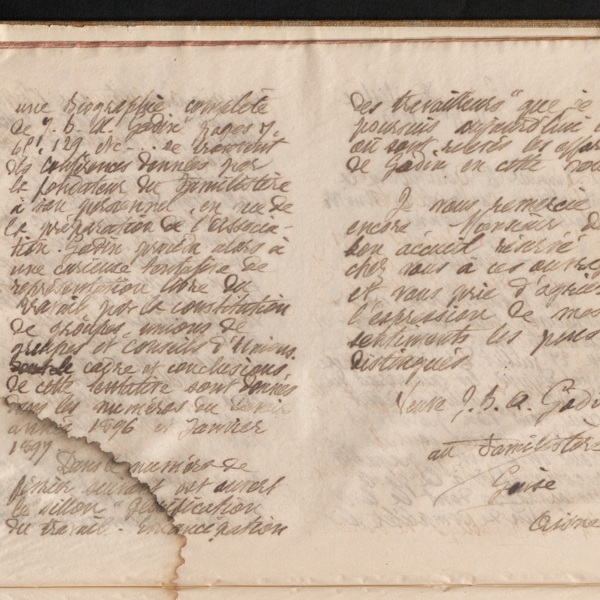 une biographie complète
de "J. B. A. Godin" pages 7,
61, 129, etc... se trouvent
des conférences données par
le fondateur du Familistère
à son personnel, en vue de
la préparation de l'Associa-
tion. Godin procéda alors à
une curieuse tentative de
représentation libre du
travail par la constitution
de groupes, unions de
groupes et conseils d'Unions.
cadre et conclusions,
de cette tentative sont données
dans les numéros du
1896 et Janvier
1897
Dans le numéro de
février suivant est ouvert
le sillon
du travail. Émancipation
des travailleurs" que je
poursuis aujourd'hui
où sont relevés les
de Godin en cette
Je vous remercie
encore Monsieur
bon accueil réservé
chez vous à ces
et vous prie d'agréer
l'expression de mes
sentiments les plus
distingués
Veuve J. B. A. Godin
au Familistère
Guise
Aisne